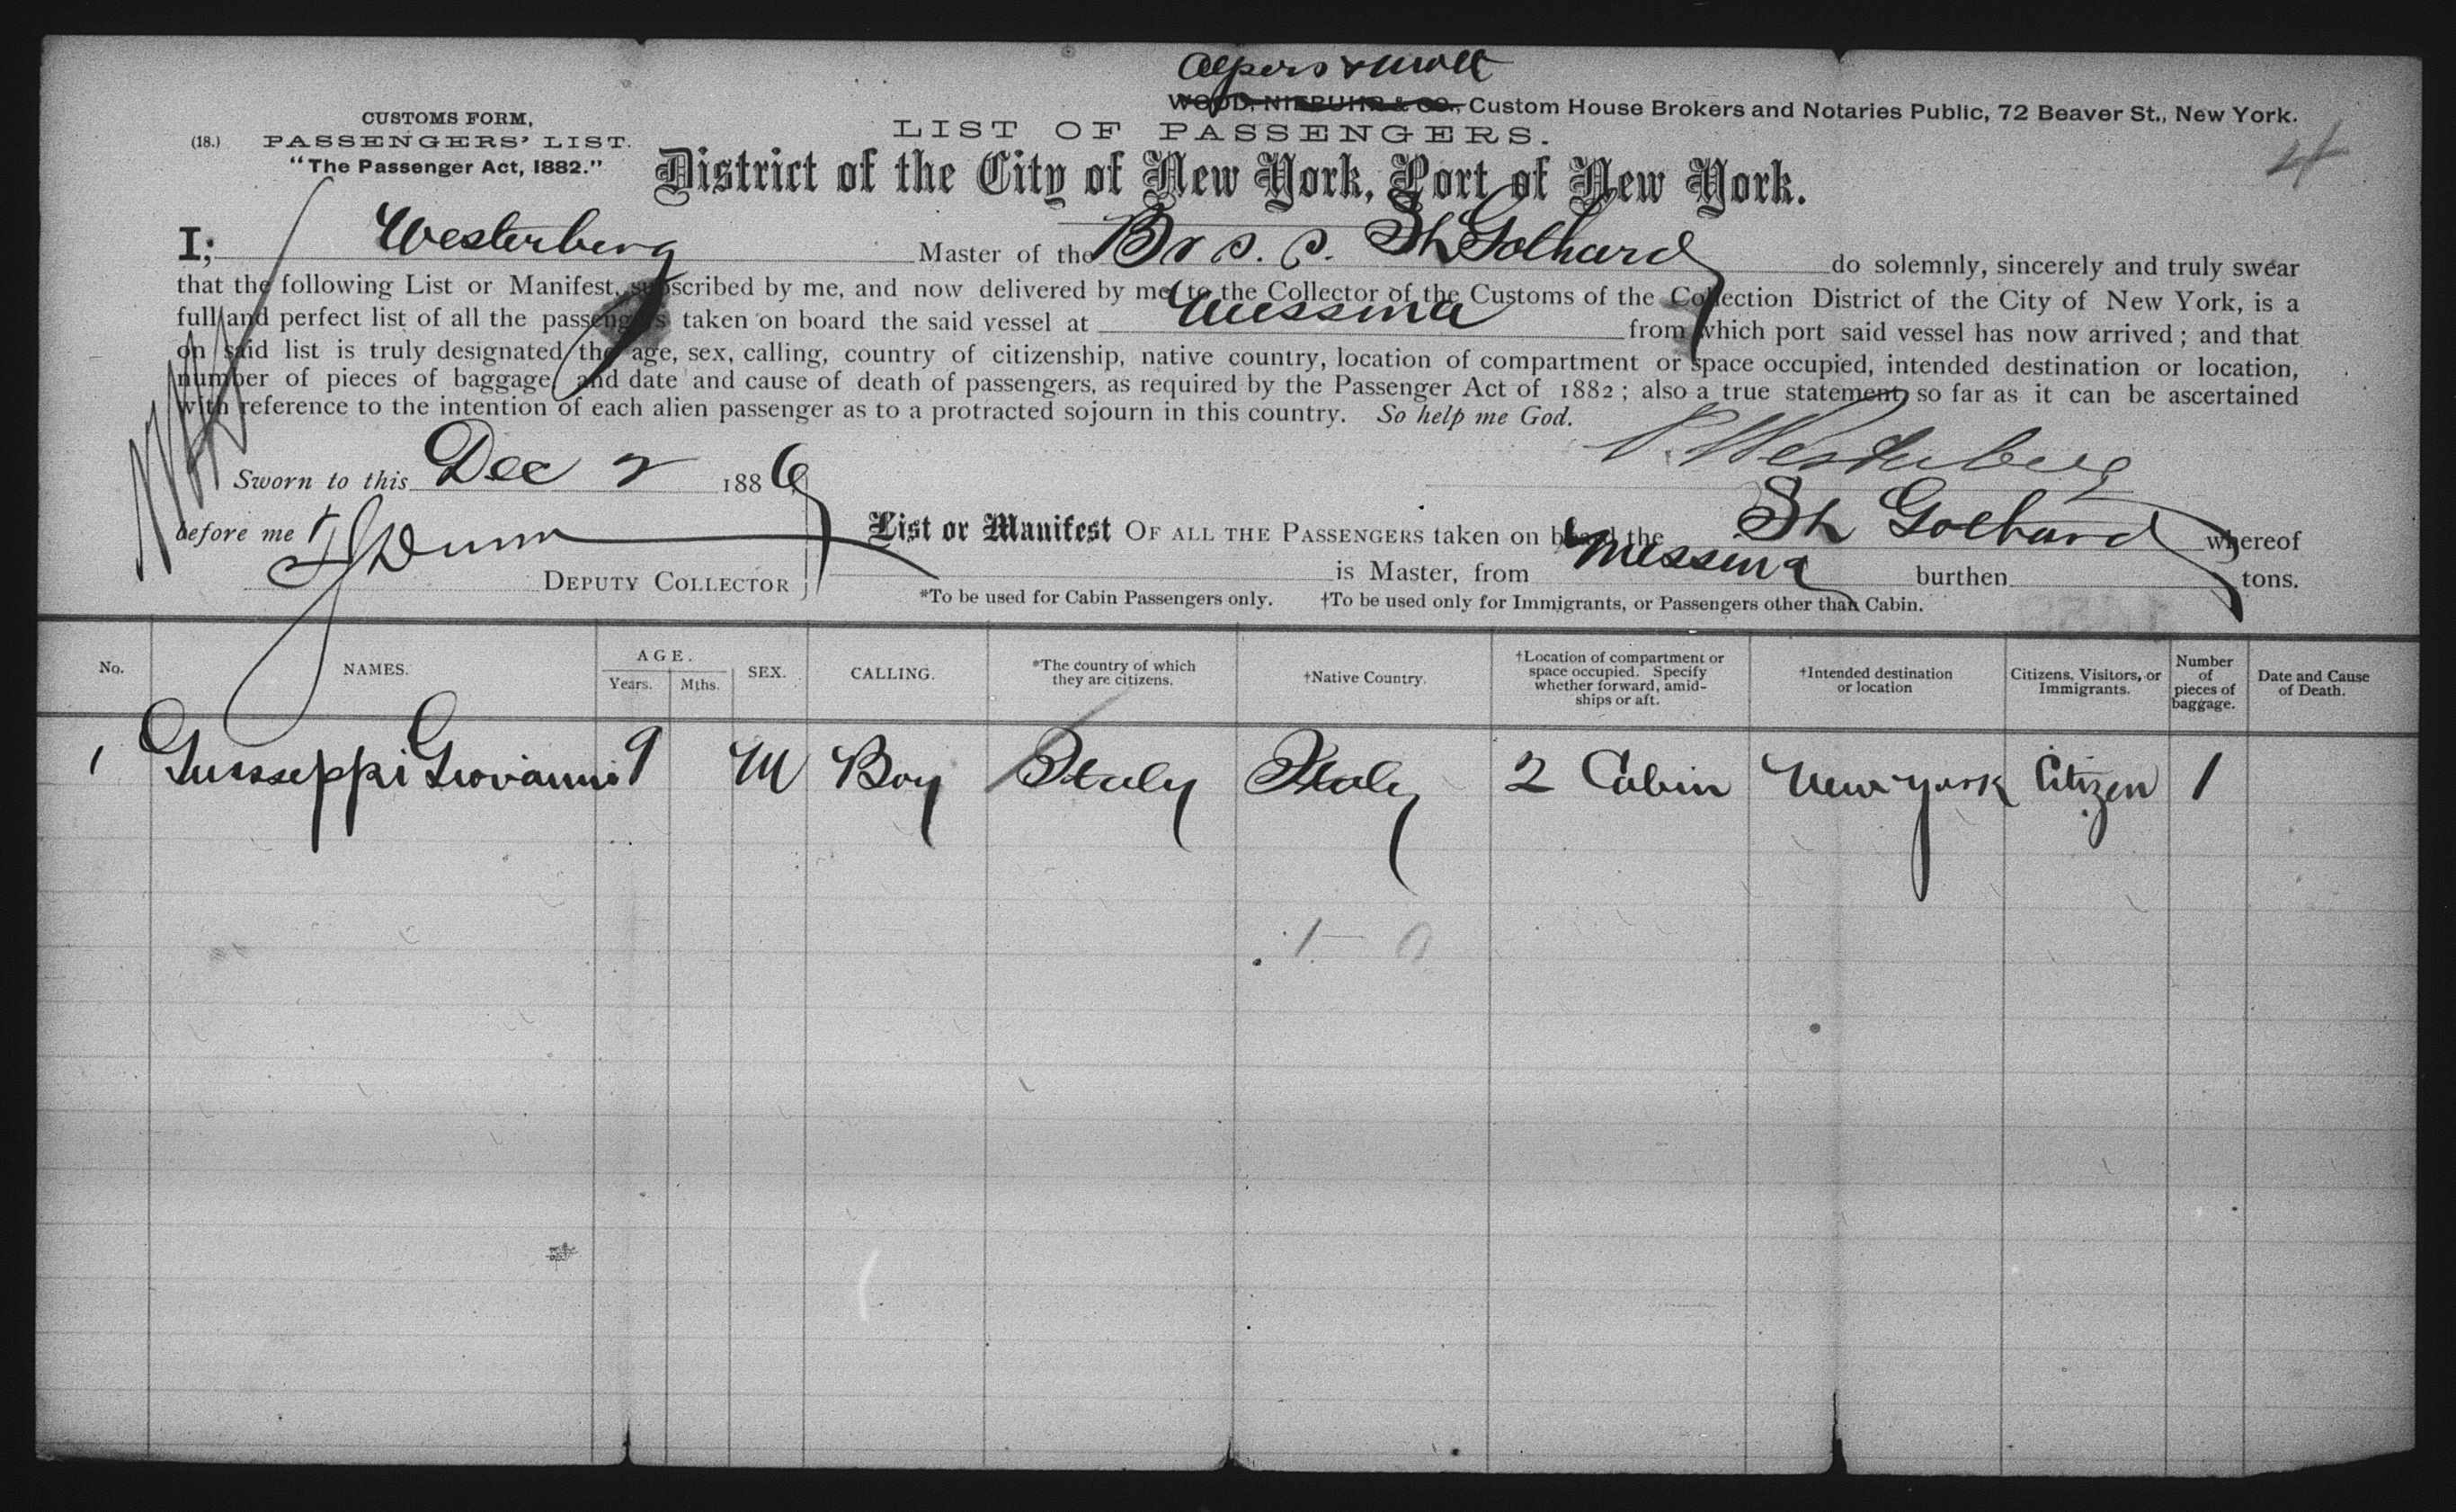 Alpers & Mott
WOOD, NIEBUHR & CO., Custom House Brokers and Notaries Public, 72 Beaver St., New York.
CUSTOMS FORM,
(18.) PASSENGERS' LIST.
"The Passenger Act, 1882."
LIST OF PASSENGERS.
4
District of the City of New York, Port of New York.
I; Westerberg Master of the Br S. S. St Gothard do solemnly, sincerely and truly swear
that the following List or Manifest, subscribed by me, and now delivered by me to the Collector of the Customs of the Collection District of the City of New York, is a
full and perfect list of all the passengers taken on board the said vessel at Messina from which port said vessel has now arrived; and that
on said list is truly designated the age, sex, calling, country of citizenship, native country, location of compartment or space occupied, intended destination or location,
number of pieces of baggage, and date and cause of death of passengers, as required by the Passenger Act of 1882; also a true statement, so far as it can be ascertained
with reference to the intention of each alien passenger as to a protracted sojourn in this country. So help me God.
Westerberg
Sworn to this Dec 2 1886
before me Dunn
DEPUTY COLLECTOR
List or Manifest OF ALL THE PASSENGERS taken on board the St Gothard whereof
is Master, from Messina burthen tons.
*To be used for Cabin Passengers only. †To be used only for Immigrants, or Passengers other than Cabin.
No. NAMES. AGE. Years. Mths. SEX. CALLING. *The country of which they are citizens. †Native Country. †Location of compartment or space occupied. Specify whether forward, amidships or aft. †Intended destination or location Citizens, Visitors, or Immigrants. Number of pieces of baggage. Date and Cause of Death.
1 Guisseppi Giovanni 9 M Boy Italy Italy 2 Cabin New York Citizen 1